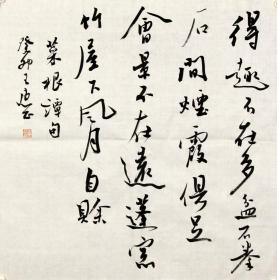 得趣不在多盆石拳
石間煙霞俱足
會景不在遠蓬窗
竹屋下風月自賒
菜根譚句
癸卯王